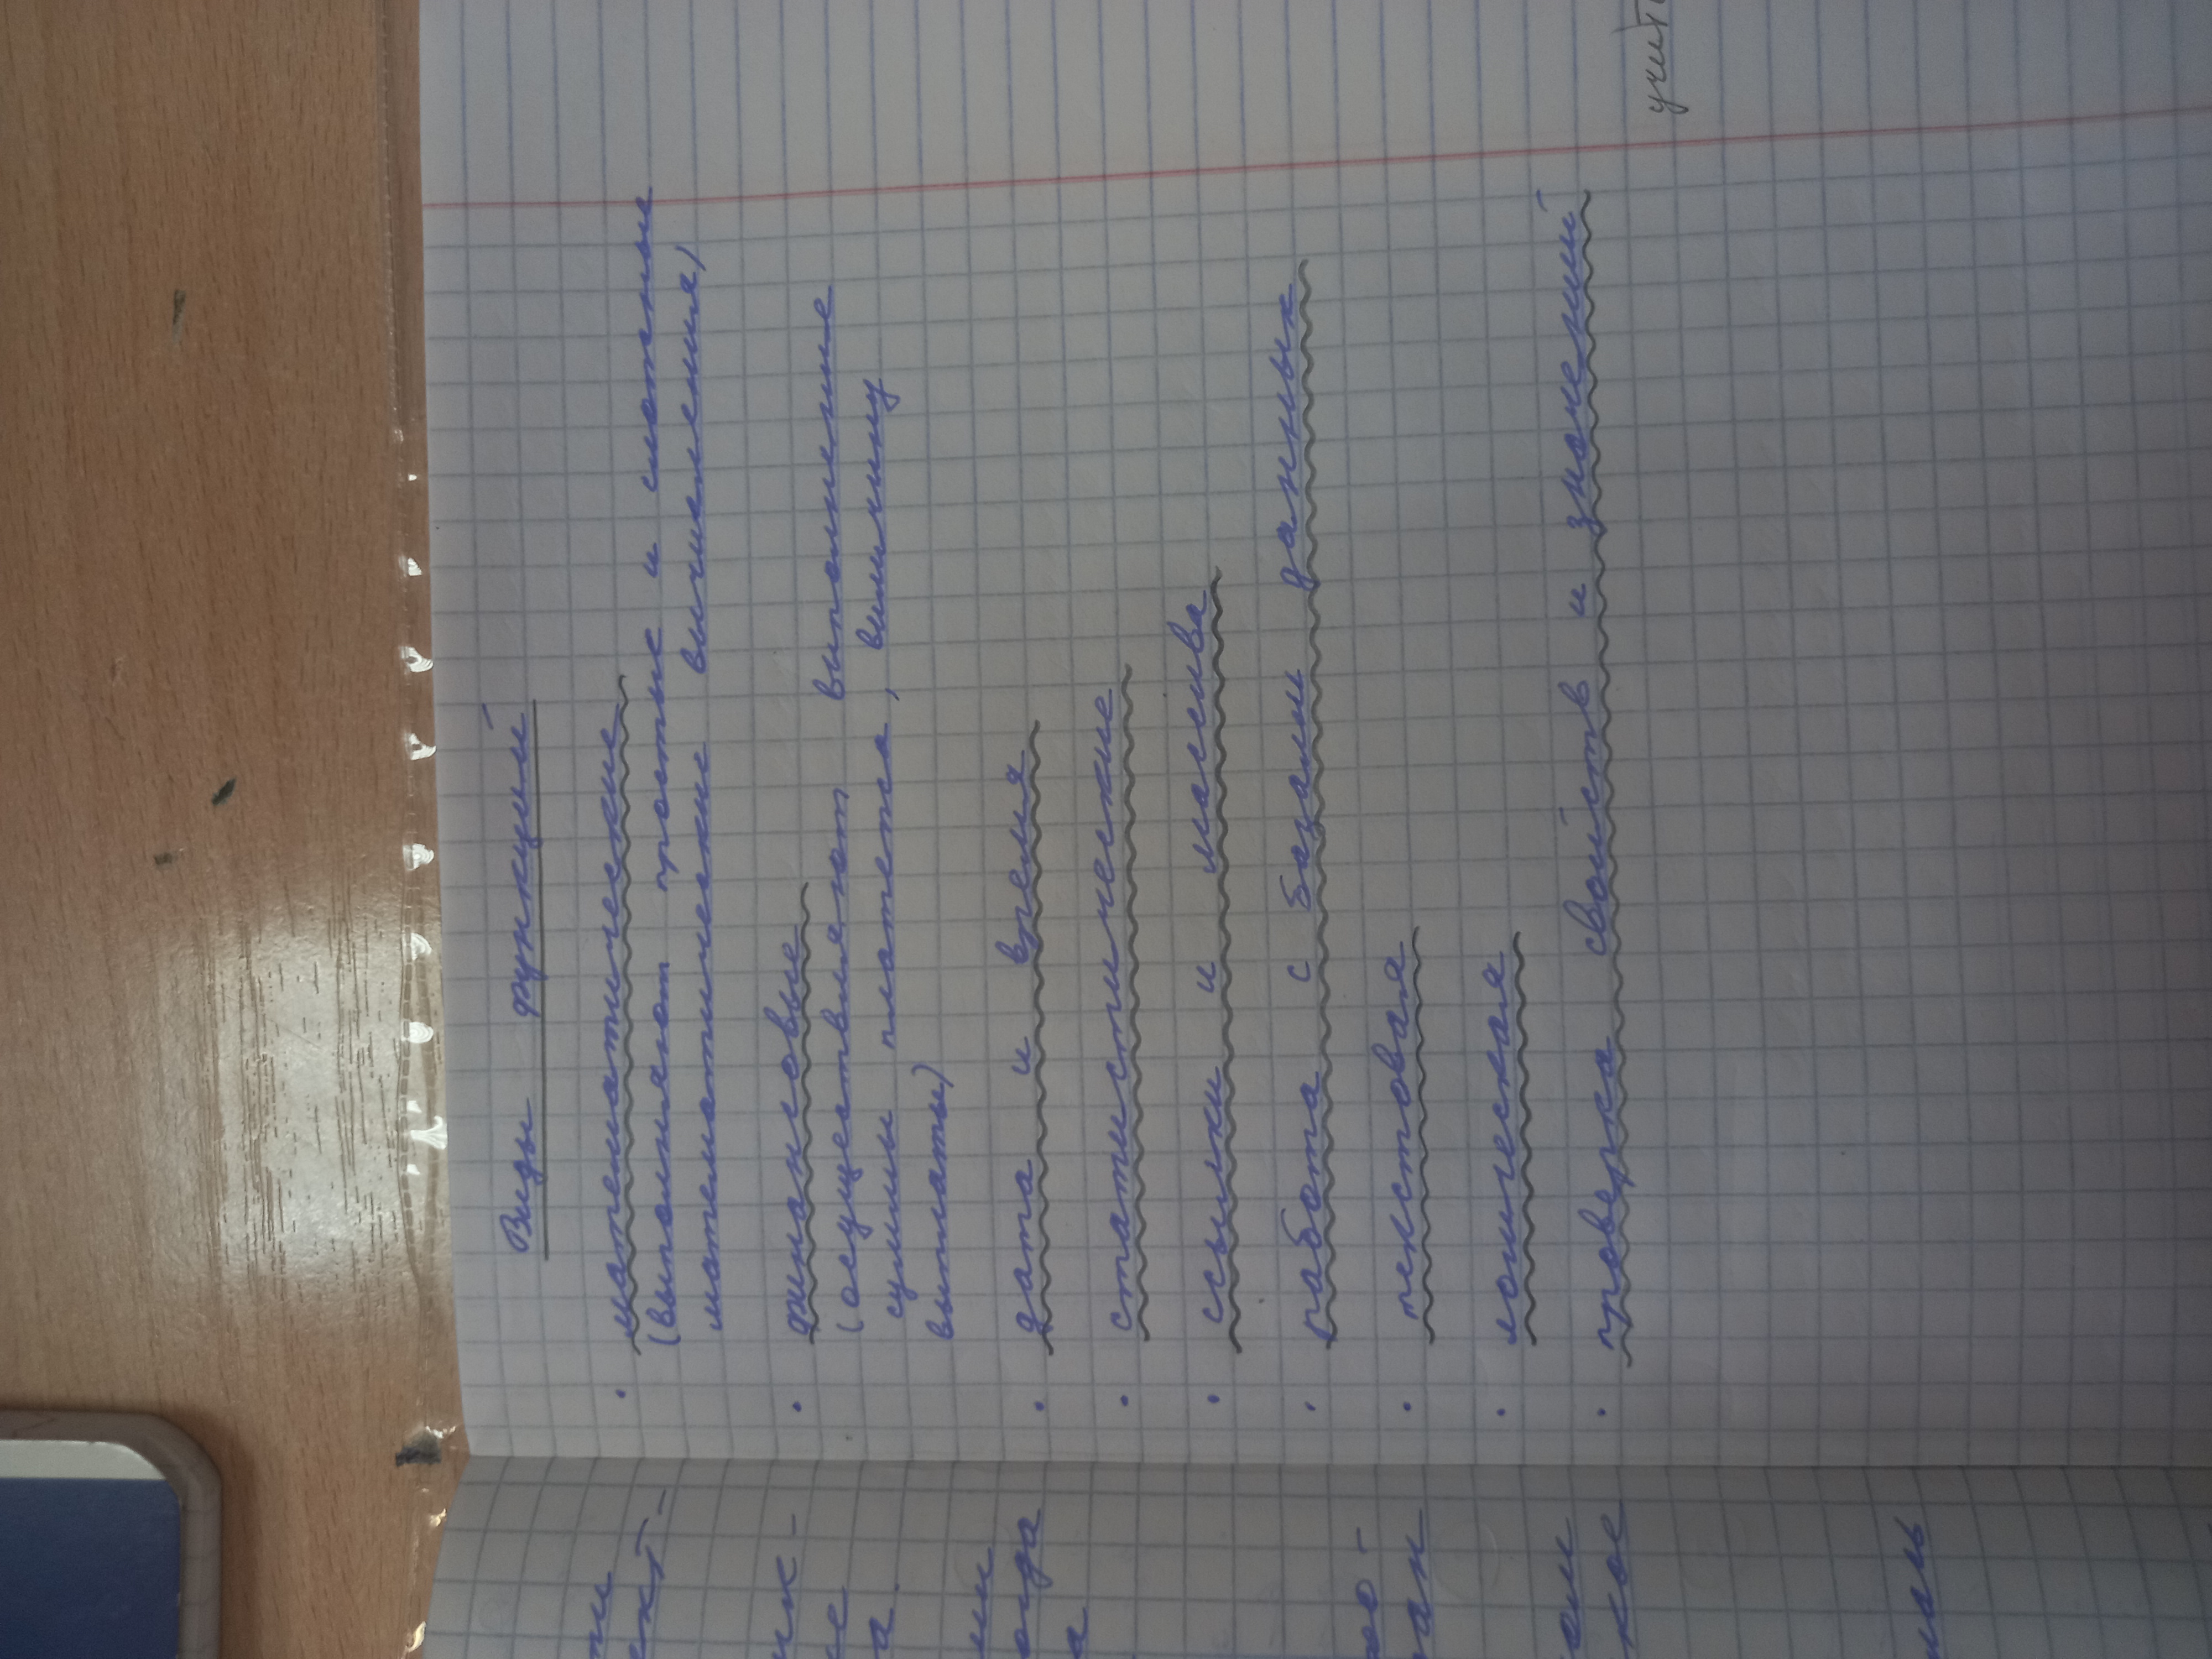 Виды функций
• математические
(выполняют простые и сложные
математические вычисления)
• финансовые
(осуществляют выполнение
суммы платежа, виличину
выплаты)
• дата и время
• статистические
• ссылки и массива
• работа с базами данных
• текстовая
• логическая
• проверка свойств и значений
учить